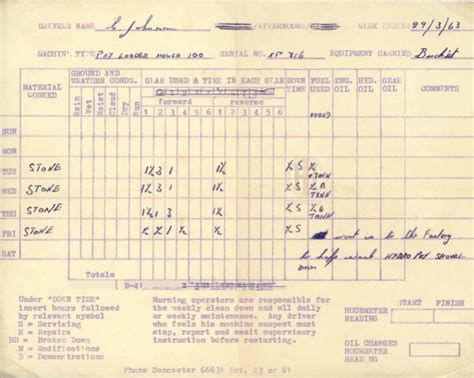 DRIVERS NAME C Johnson /AFTERNOONS/ WEEK ENDING 29/3/63
MACHINE TYPE PAY LOADER HOUGH 100 SERIAL NO. XP 816 EQUIPMENT CARRIED Bucket
MATERIAL WORKED
GROUND AND WEATHER CONDS.
Rain Wet Moist Cloud Dry Sun
GEAR USED & TIME IN EACH GEAR
forward reverse
1 2 3 4 5 6 1 2 3 4 5 6
DOWN TIME
FUEL USED
ENG. OIL
HYD. OIL
GEAR OIL
COMMENTS
SUN
MON
TUE STONE 1½ 3 1 1½ ½ S
WED STONE 1½ 3 1 1½ ½ S TANK
THU STONE 1½ 3 1 1½ ½ S TANK
FRI STONE ½ ½ 1 ½ ½ S went us to the Factory
SAT to help HYDRO
Down
Totals
Under "DOWN TIME" insert hours followed by relevant symbol
S - Servicing
R - Repairs
BD - Broken Down
M - Modifications
D - Demonstrations
Warning operators are responsible for
the weekly clean down and all daily
or weekly maintenance. Any driver
who feels his machine suspect must
stop, report and await supervisory
instruction before restarting.
START FINISH
HOURMETER READING
OIL CHANGES
HOURMETER READING
Phone Doncaster 66631 Ext. 23 or 61